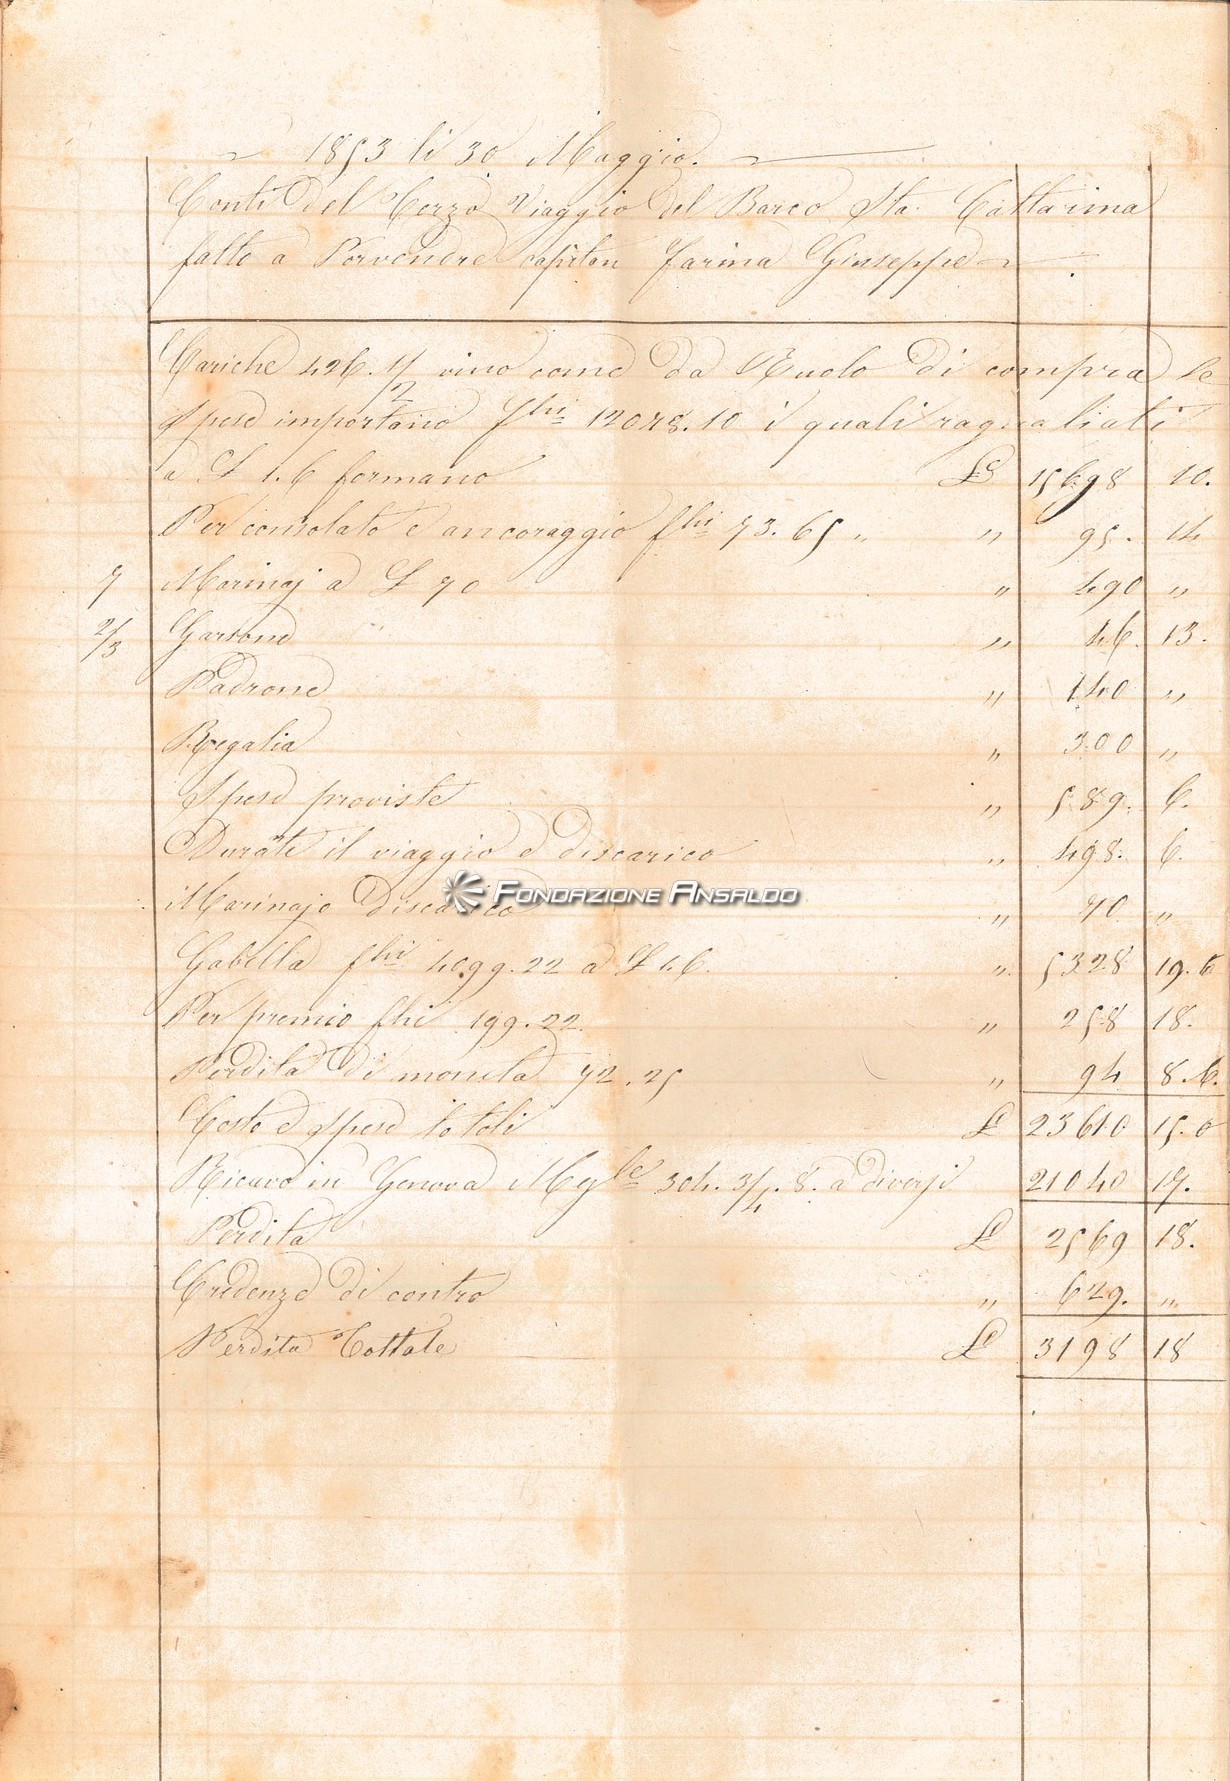 1853 li 30 Maggio.
Conti del Terzo Viaggio del Barco Sta. Cattarina
fatto a Porvendre capitan Farina Giuseppe
Cariche 426. 1/2 vino come da Ruolo di compra le
Spese importano fhi 12078.10 i quali ragualiati
a £ 1.6 formano £ 15698 10.
Per consolato e ancoraggio fhi 73.65 " " 95. 14
7 Marinaj a £ 70 " 490 "
2/3 Garsone " 46. 13.
Padrone " 140 "
Regalia " 300 "
Spese proviste " 589. 6.
Durate il viaggio e discarico " 498. 6.
Marinaje Discarico " 70 "
FONDAZIONE ANSALDO
Gabella fhi 4099.22 a £ 1.6. " 5328 19.6
Per premio fhi 199.22 " 258 18.
Perdita di moneta 72.25 " 94 8.6.
Costo e Spese totoli £ 23610 15.0
Ricavo in Genova Mgle 304. 3/4. 8. a diversi 21040 17.
Perdita £ 2569 18.
Credenze di contro " 629. "
Perdita Tottale £ 3198 18